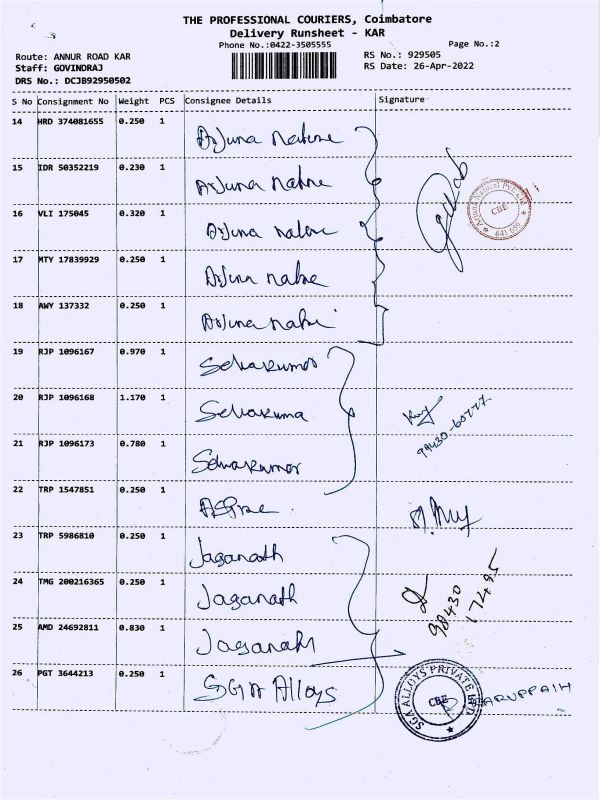 THE PROFESSIONAL COURIERS, Coimbatore
Delivery Runsheet - KAR
Phone No.:0422-3505555
Page No.:2
Route: ANNUR ROAD KAR
Staff: GOVINDRAJ
DRS No.: DCJB92950502
RS No.: 929505
RS Date: 26-Apr-2022
S No Consignment No Weight PCS Consignee Details Signature
14 HRD 374081655 0.250 1 Arjuna Nature
15 IDR 50352219 0.230 1 Arjuna Natne
16 VLI 175045 0.320 1 Arjuna natere
Arjuna Natural Pvt. Ltd. CBE 641 050
17 MTY 17839929 0.250 1 Arjuna natne
18 AWY 137332 0.250 1 Arjuna
19 RJP 1096167 0.970 1 Selvakumar
20 RJP 1096168 1.170 1 Selvakuma
99430-60777
21 RJP 1096173 0.780 1 Selvakumar
22 TRP 1547851 0.250 1
23 TRP 5986810 0.250 1 Jaganath
24 TMG 200216365 0.250 1 Jaganath
98430 17495
25 AMD 24692811 0.830 1 Jaganath
26 PGT 3644213 0.250 1 SGA Alloys
SGA ALLOYS PRIVATE LTD CBE
KARUPPAIH